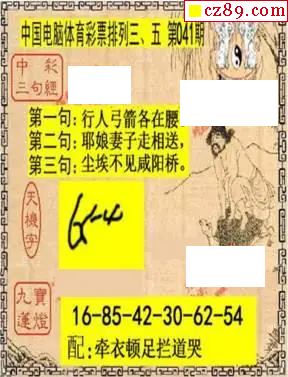 cz89.com
中国电脑体育彩票排列三、五 第041期
中彩
三句經
第一句: 行人弓箭各在腰
第二句: 耶娘妻子走相送,
第三句: 尘埃不见咸阳桥。
天機字
九寶
蓮燈
16-85-42-30-62-54
配: 牵衣顿足拦道哭